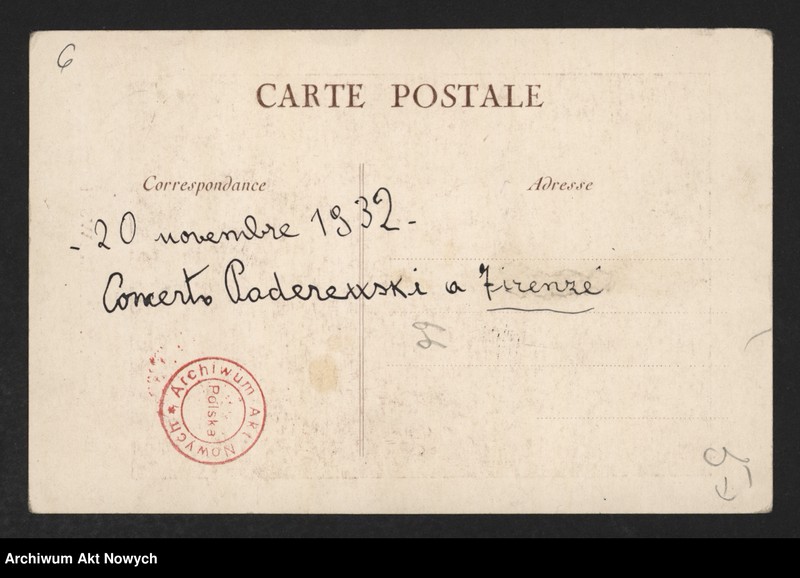 6
CARTE POSTALE
Correspondance
Adresse
- 20 novembre 1932 -
Concerto Paderewski a Firenze
Archiwum Akt Nowych *
Polska
Archiwum Akt Nowych